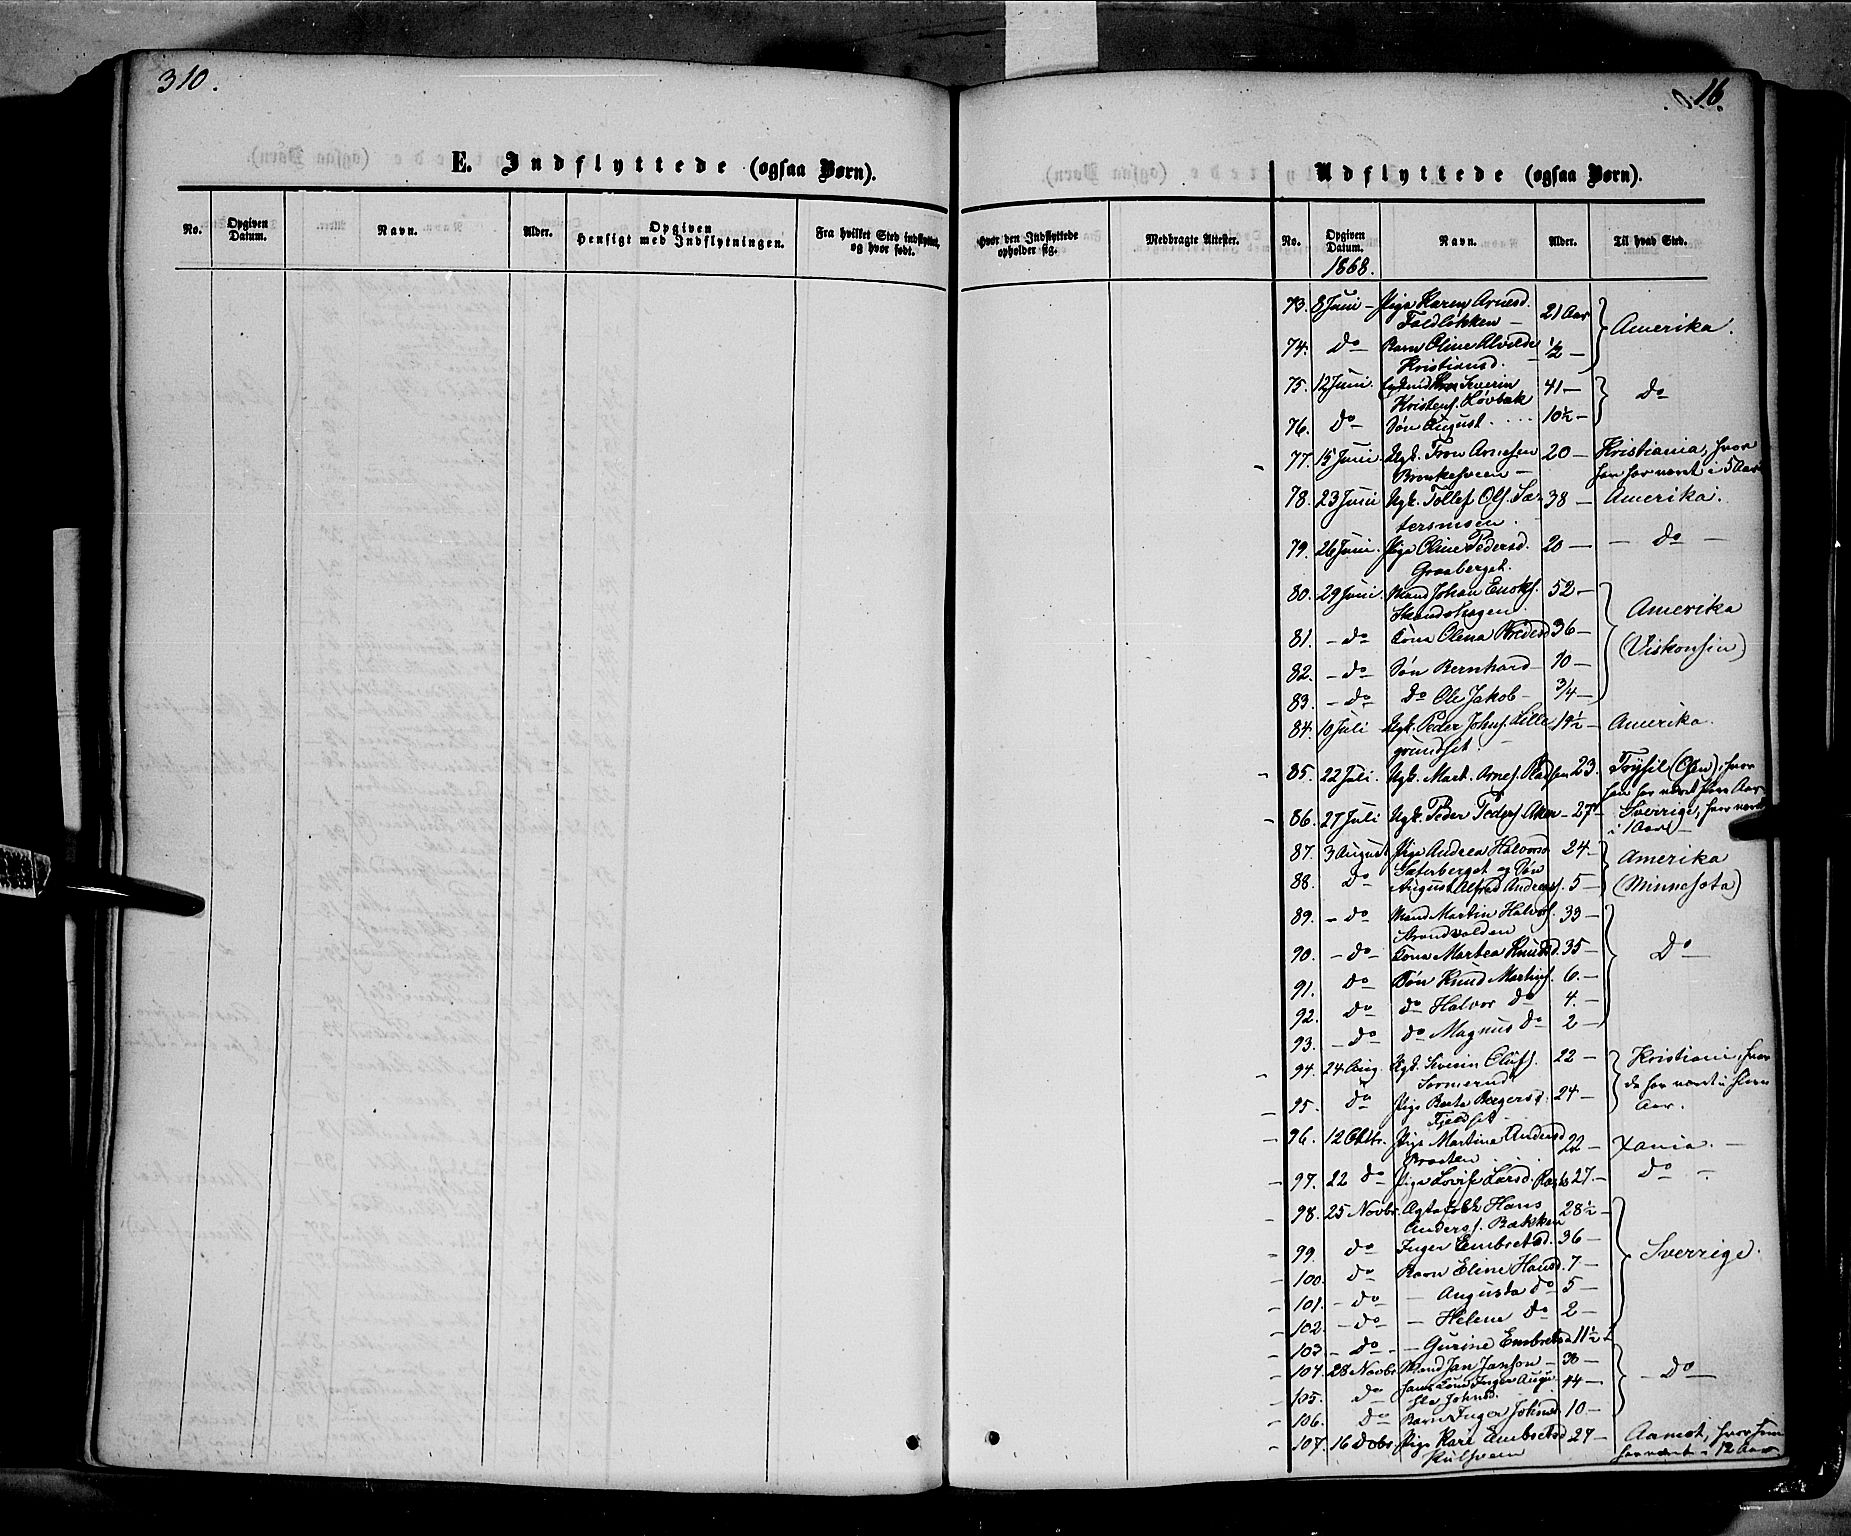 310.
16.
E. Indflyttede (ogsaa Børn).
Udflyttede (ogsaa Børn).
No. Opgiven Datum. Navn. Alder. Opgiven Hensigt med Indflytningen. Fra hvilket Sted indflyttet, og hvor født.
Hvor den Indflyttede opholder sig. Medbragte Attester. No. Opgiven Datum. Navn. Alder. Til hvad Sted.
1868.
73. 8 Juni – Pige Karen Arnesd. 21 Aar Amerika.
Foldløkken –
74. Do Barn Oline Alvilde ½ –
Kristiansd.
75. 12 Juni. Severin 41 – Do
Kristens. Løvbak
76. Do Søn August. 10½ –
77. 15 Juni. Ugk. Tron Arnesen 20 – Kristiania, hvor
han har været i 5 Aar
78. 23 Juni Ugk. Tollef Ols. Sæ- 38 – Amerika.
tersmoen.
79. 26 Juni. Pige Oline Pedersd. 20 – – Do –
Graaberget.
80. 29 Juni. Mand Johan Enoks. 52 – Amerika
Strandshagen.
81. – Do Kona Olena 36 – (Viskonsin)
82. – Do Søn Bernhard 10 –
83. – Do Do Ole Jakob – ¾ –
84. 10 Juli Ugk. Peder Johns. Lille 19½ – Amerika.
grundset –
85. 22 Juli. Ugk. Mart. Arnes. 23. Trysil (Osen), hvor
han har været flere Aar
86. 27 Juli Ugk. Peder Peders. – 27 – Sverrige, hvor været
i 1 Aar –
87. 3 August Pige Andrea Halvorsd 24 – Amerika
Sæterberget og Søn
88. Do August Alfred Andreas. 5 – (Minnesota)
89. – Do Mand Martin Halvors. 33 – Do
Strandvolden
90. – Do – Kona Martea Knudsd. 35 –
91. Do Søn Knud Martins. 6. –
92. Do Do Halvor Do 4. –
93. – Do Do Magnus Do 2 –
94. 24 Aug. Ugk. Severin Olufs. 22 – Kristiani, hvor
de har været i flere
95. Do Pige Berte Bergersd. 24 – Aar.
Fjeldset
96. 12 Oktbr. Pige Martina Andersd 22 – Xania. –
Braaten
97. 22 Do Pige Lovise Larsd. 27. – Do –
98. 25 Novbr. Ægtefolk Hans 28½ – Sverrige.
Anderss. Bakken
99. Do Inger Embretsd. 36 –
100. Do Barn Eline Hansd. 7 –
101. – Do – Augusta Do 5 –
102. – Do – Helene Do 2 –
103 – Do – – Gurine Embretsd 11½
104. 28 Novbr Mand Jan Janson – 38 – – Do –
105. Do hans Kone Inger Augu 44 –
sta Johnsd.
106. Do Barn Inger Johnsd. 10 –
107. 16 Decbr Pige Kari Embretsd 27 – Aamot, hvor hun
har været i 12 Aar.
Kulsveen